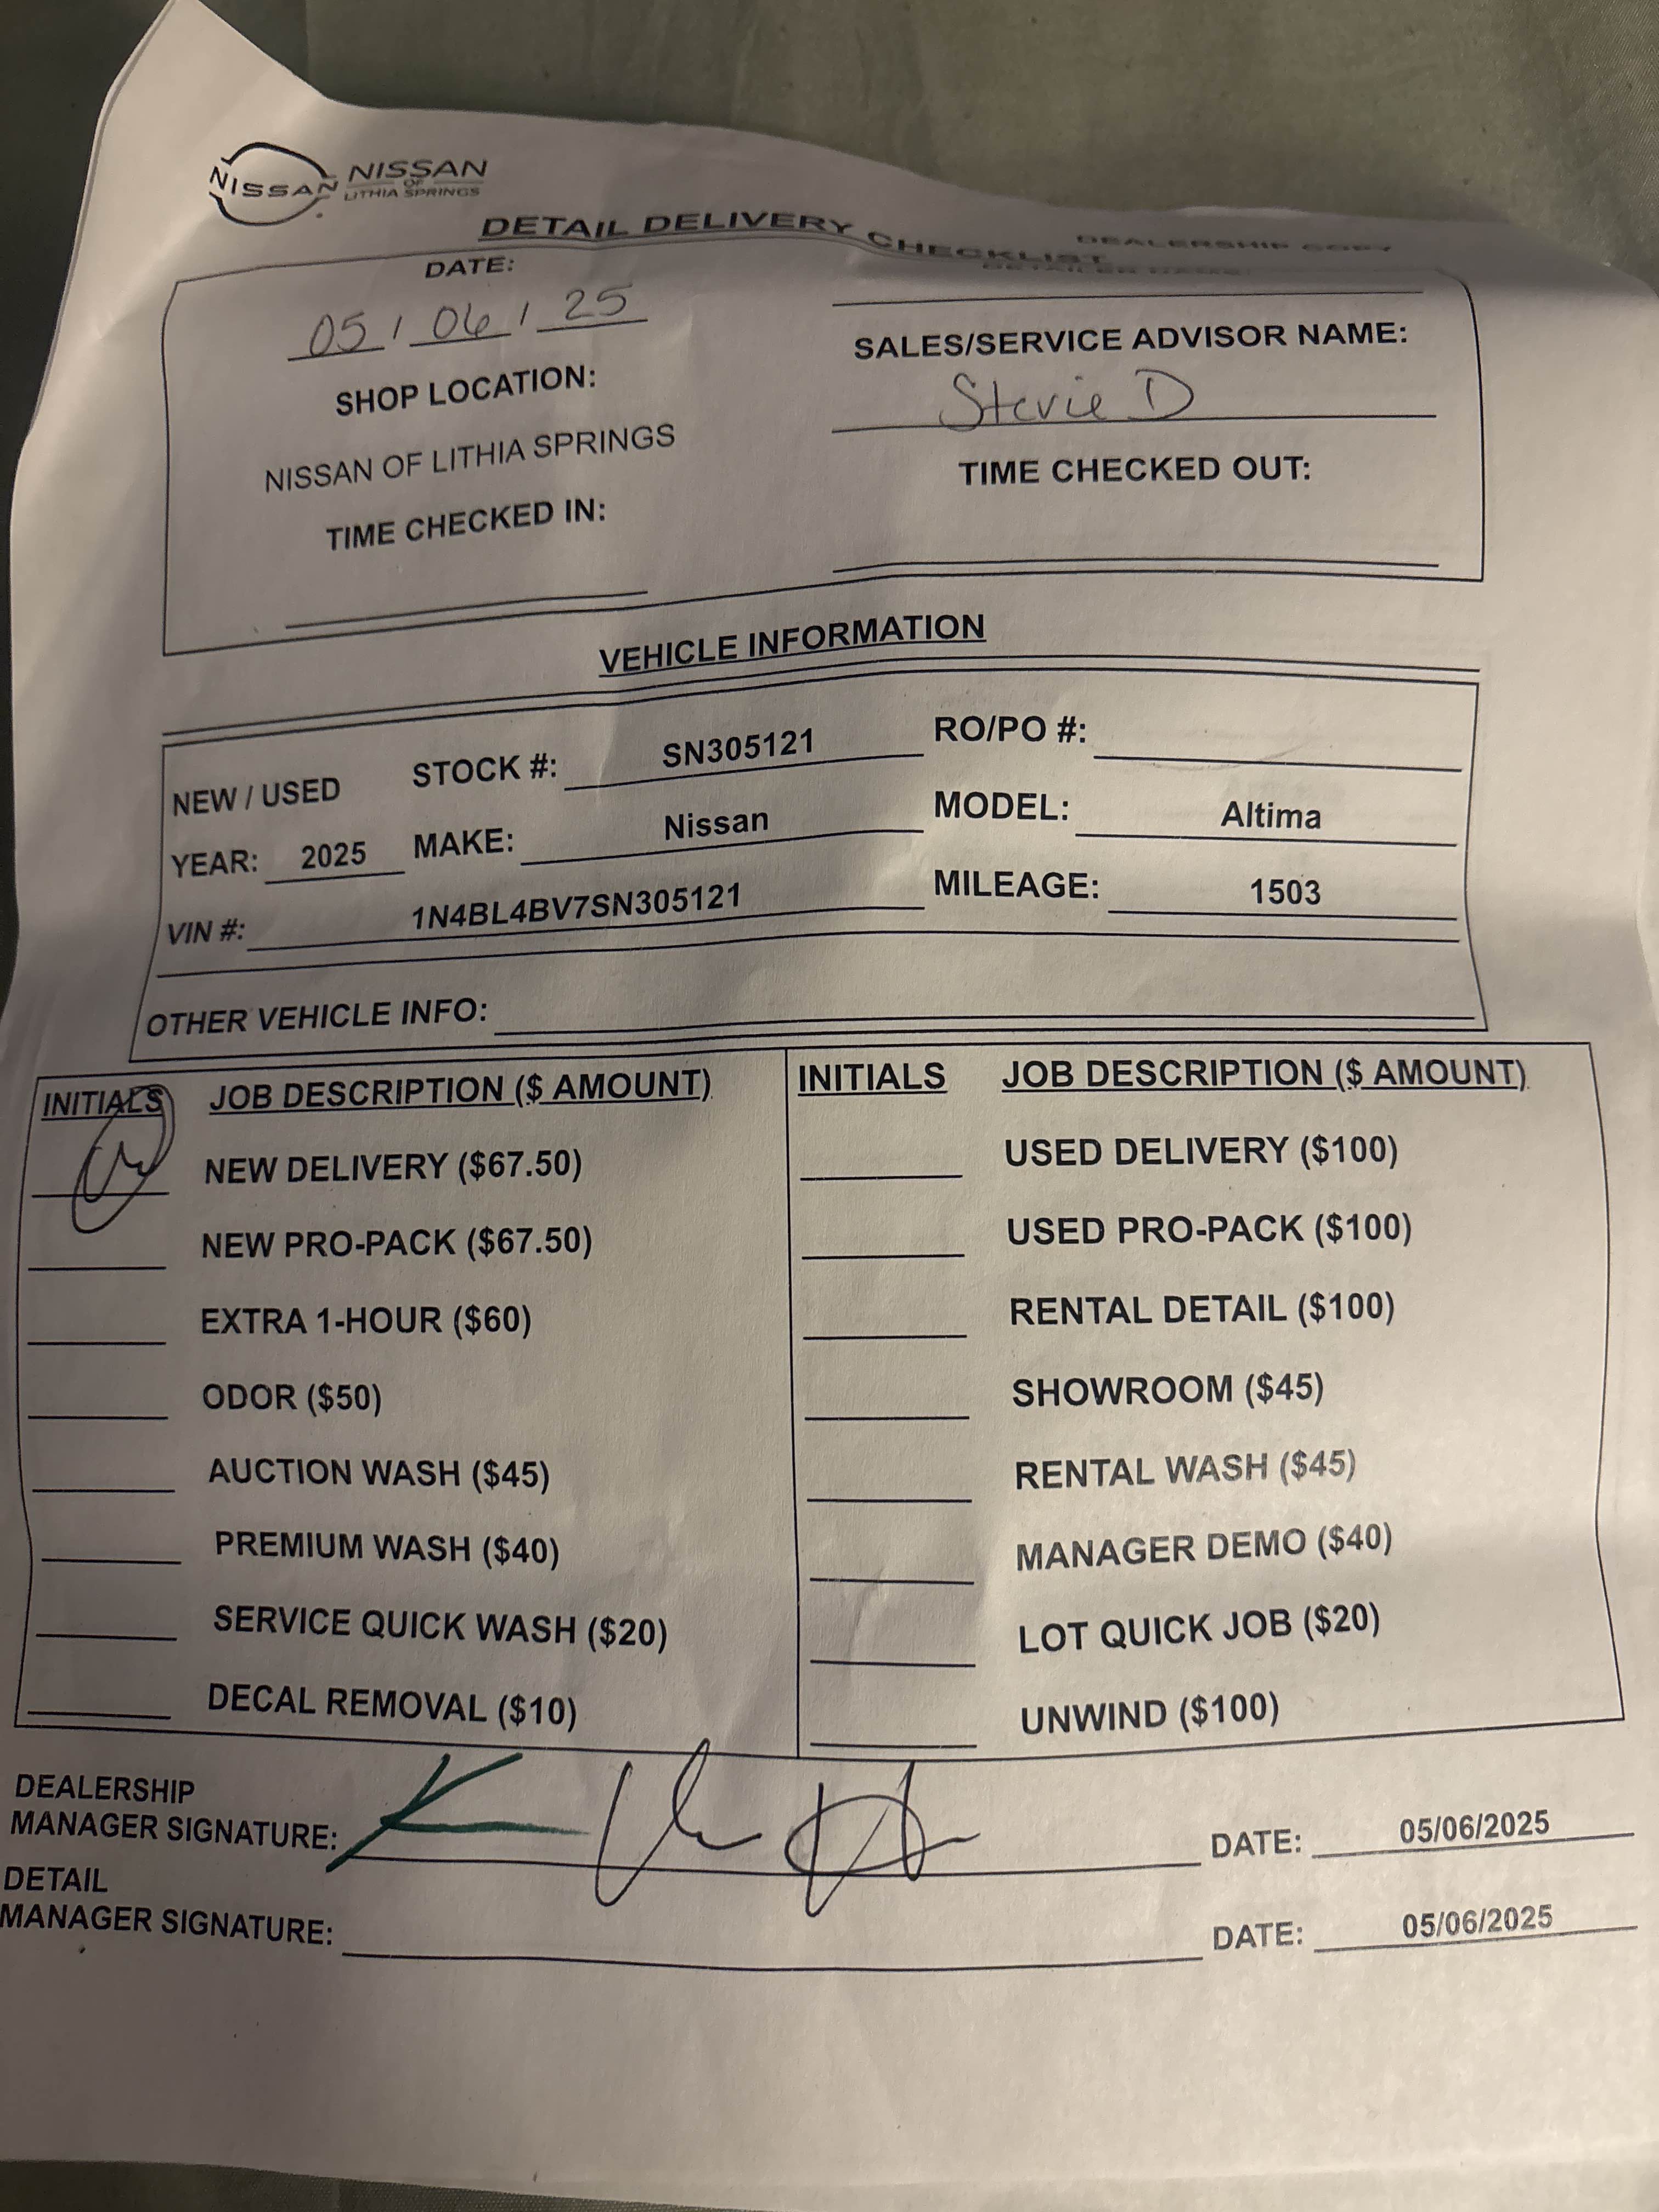 NISSAN NISSAN
OF
LITHIA SPRINGS
DETAIL DELIVERY CHECKLIST
DEALERSHIP COPY
DATE:
DETAILER NAME:
05 / 06 / 25
SHOP LOCATION:
SALES/SERVICE ADVISOR NAME:
Stevie D
NISSAN OF LITHIA SPRINGS
TIME CHECKED IN:
TIME CHECKED OUT:
VEHICLE INFORMATION
NEW / USED STOCK #: SN305121 RO/PO #:
YEAR: 2025 MAKE: Nissan MODEL: Altima
VIN #: 1N4BL4BV7SN305121 MILEAGE: 1503
OTHER VEHICLE INFO:
INITIALS JOB DESCRIPTION ($ AMOUNT)
NEW DELIVERY ($67.50)
NEW PRO-PACK ($67.50)
EXTRA 1-HOUR ($60)
ODOR ($50)
AUCTION WASH ($45)
PREMIUM WASH ($40)
SERVICE QUICK WASH ($20)
DECAL REMOVAL ($10)
INITIALS JOB DESCRIPTION ($ AMOUNT)
USED DELIVERY ($100)
USED PRO-PACK ($100)
RENTAL DETAIL ($100)
SHOWROOM ($45)
RENTAL WASH ($45)
MANAGER DEMO ($40)
LOT QUICK JOB ($20)
UNWIND ($100)
DEALERSHIP
MANAGER SIGNATURE: DATE: 05/06/2025
DETAIL
MANAGER SIGNATURE: DATE: 05/06/2025